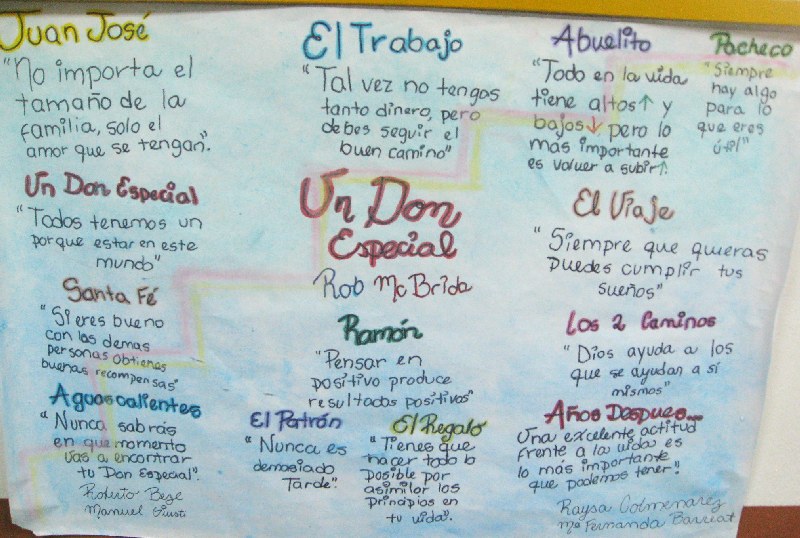 Juan José
"No importa el
tamaño de la
familia, solo el
amor que se tengan".
El Trabajo
"Tal vez no tengas
tanto dinero, pero
debes seguir el
buen camino"
Abuelito
"Todo en la vida
tiene altos↑ y
bajos↓ pero lo
más importante
es volver a subir↑.
Pacheco
"Siempre
hay algo
para lo
que eres
útil"
Un Don Especial
"Todos tenemos un
porque estar en este
mundo"
Un Don
Especial
Rob McBride
El Viaje
"Siempre que quieras
puedes cumplir tus
sueños"
Santa Fé
"Si eres bueno
con las demas
personas obtienes
buenas recompensas"
Ramón
"Pensar en
positivo produce
resultados positivos"
Los 2 Caminos
"Dios ayuda a los
que se ayudan a sí
mismos"
Aguascalientes
"Nunca sabrás
en que momento
vas a encontrar
tu Don Especial".
Roberto
Manuel
El Patrón
"Nunca es
demasiado
Tarde".
El Regalo
"Tienes que
hacer todo lo
posible por
asimilar los
principios en
tu vida".
Años Despues...
Una excelente actitud
frente a la vida es
lo más importante
que podemos tener".
Raysa Colmenarez
Ma Fernanda